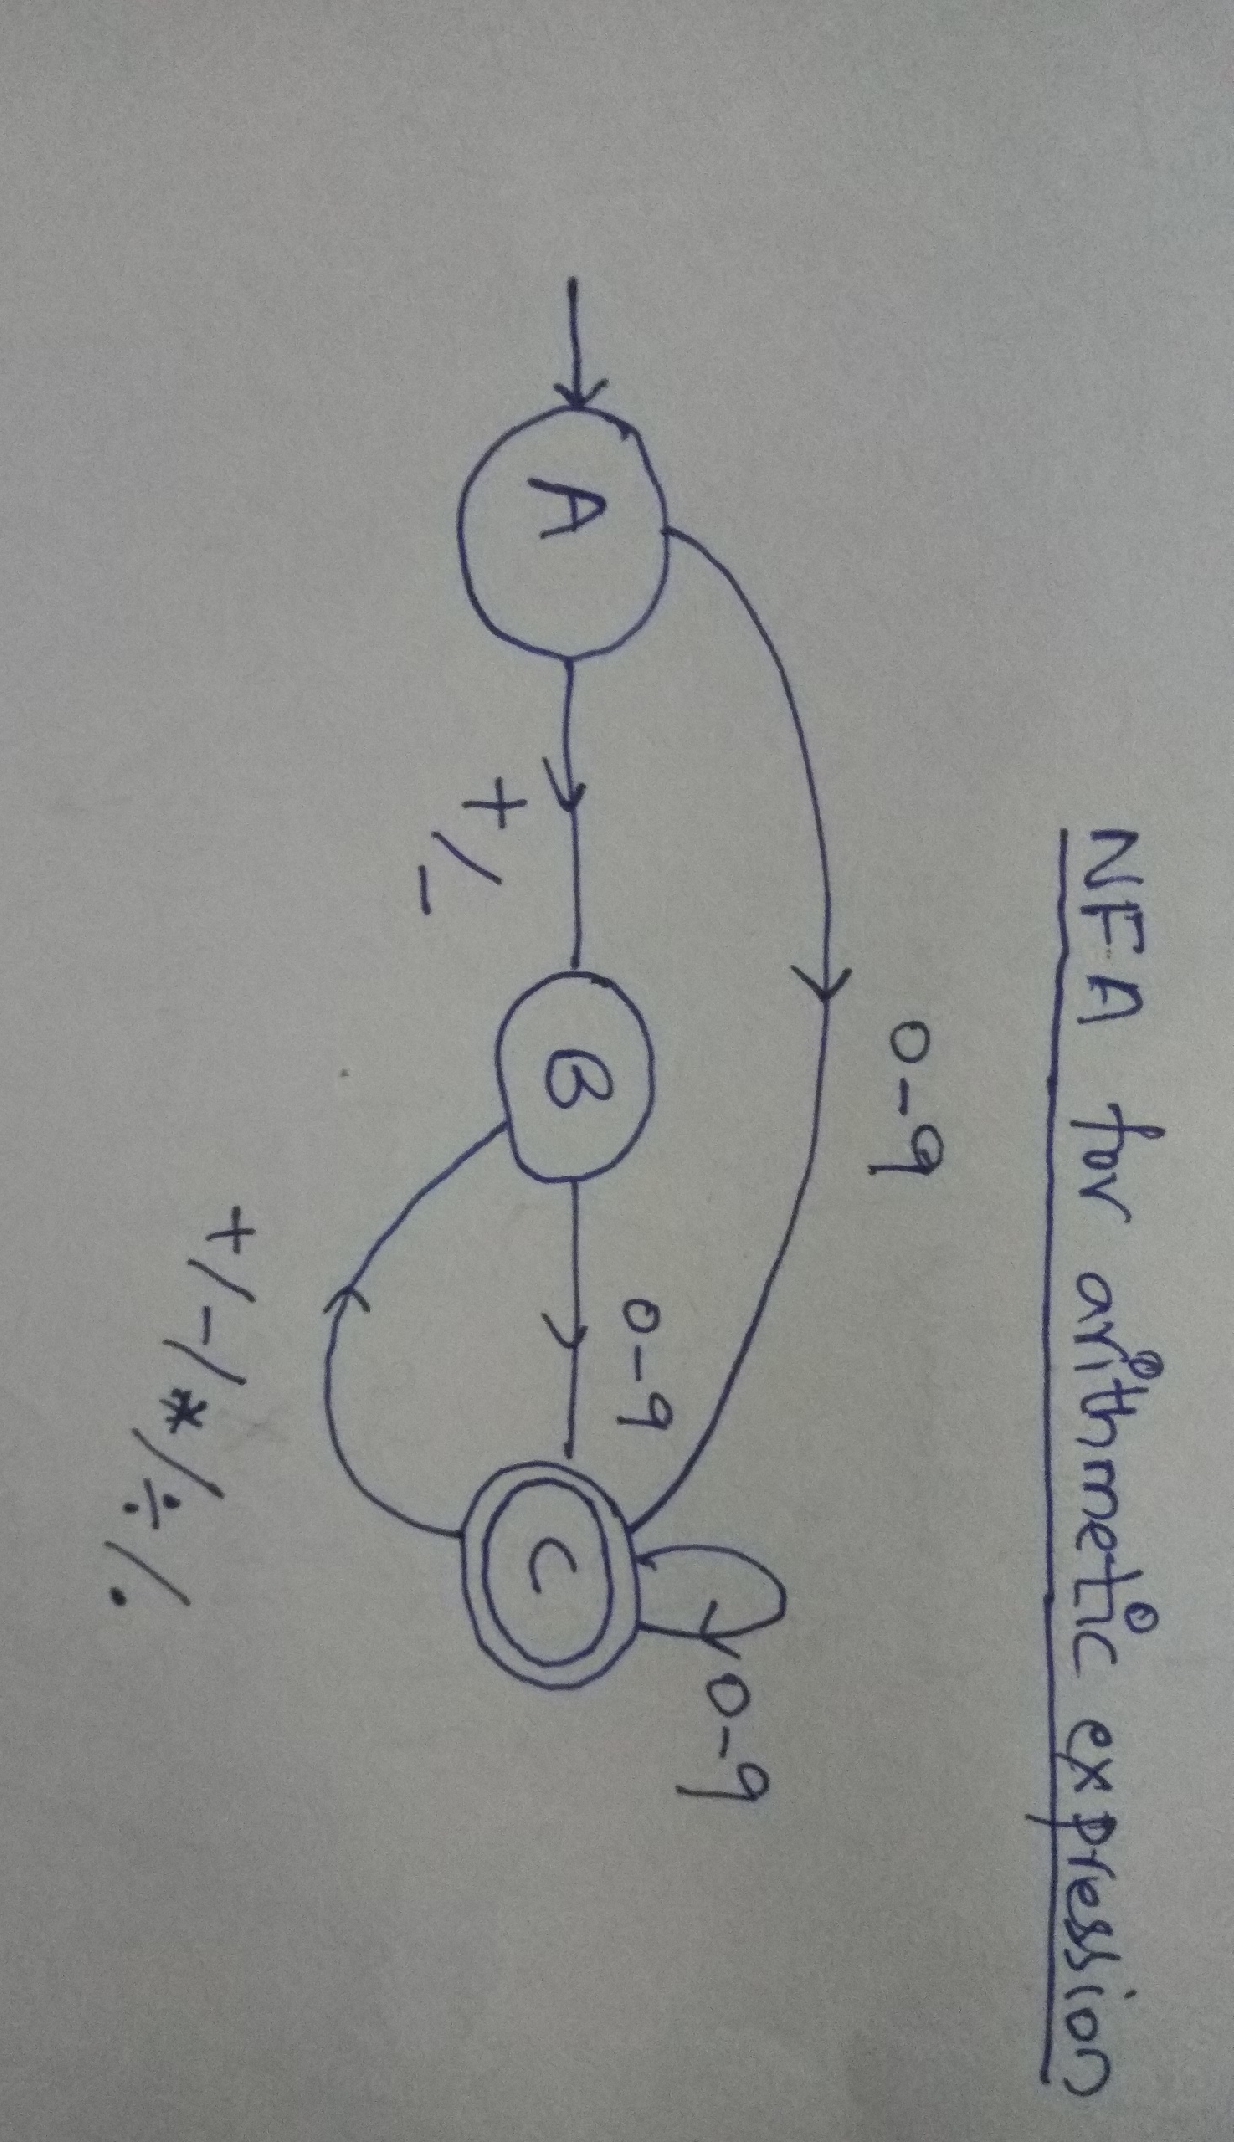 NFA for arithmetic expression
0-9
0-9
0-9
A
B
C
+/-
+/-/*/÷/.